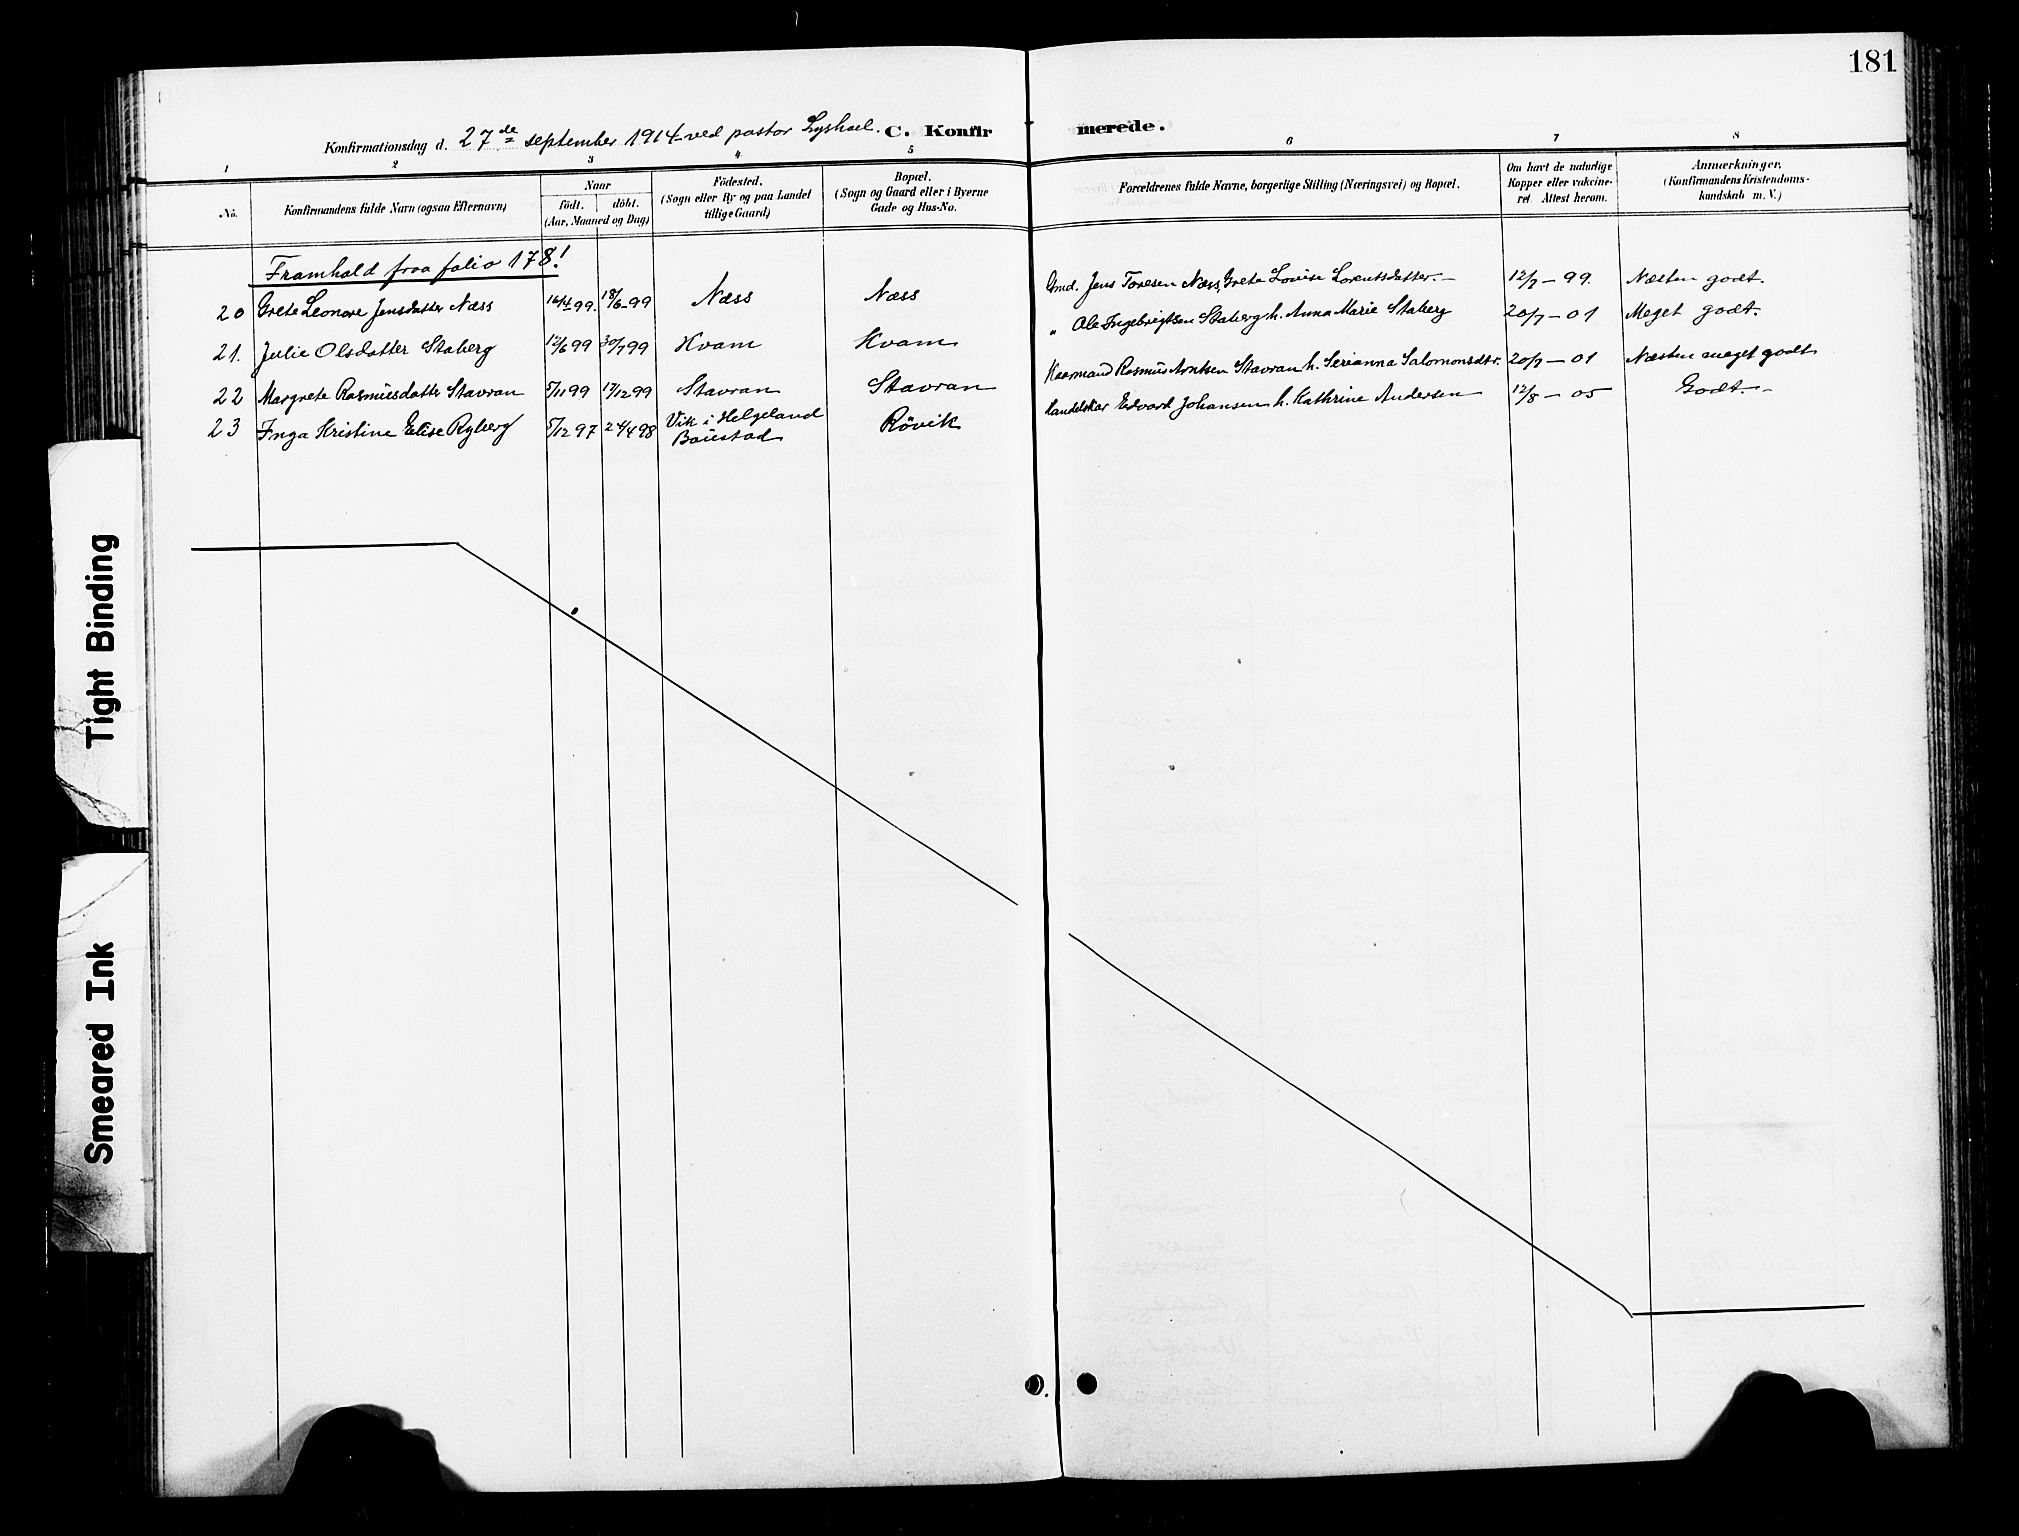 181
Konfirmationsdag d. 27de september 1914 ved pastor Lyshoel. C. Konfirmerede.
1 2 3 4 5 6 7 8
No.
Konfirmandens fulde Navn (ogsaa Efternavn)
Naar
født. döbt.
(Aar, Maaned og Dag)
Födested.
(Sogn eller By og paa Landet
tillige Gaard)
Bopæl.
(Sogn og Gaard eller i Byerne
Gade og Hus-No.
Forældrenes fulde Navne, borgerlige Stilling (Næringsvei) og Bopæl.
Om havt de naturlige
Kopper eller vakcine-
ret. Attest herom.
Anmærkninger.
(Konfirmandens Kristendoms-
kundskab m. V.)
Framhald fraa folio 178!
20 Grete Leonore Jensdatter Næss 16/4 99. 18/6-99 Næss Næss Gmd. Jens Toresen Næss, Grete Lovise Lorentsdatter.- 12/7-99. Næsten godt.
21. Julie Olsdatter Staberg 12/6 99 30/7 99 Kvam Kvam " Ole Ingebrigtsen Staberg h. Anna Marie Staberg 20/7-01 Meget godt.
22 Margrete Rasmusdatter Stavran 5/11 99 17/12 99 Stavran Stavran Kaarmand Rasmus Arntsen Stavran h. Serianna Salomonsdtr. 20/7-01 Næsten meget godt
23 Inga Kristine Elise Ryberg 5/12 97 24/4 98 Vik i Helgeland Røvik Handelskar Edvard Johansen h. Kathrine Andersen 12/8-05 Godt.-
Tight Binding
Smeared Ink